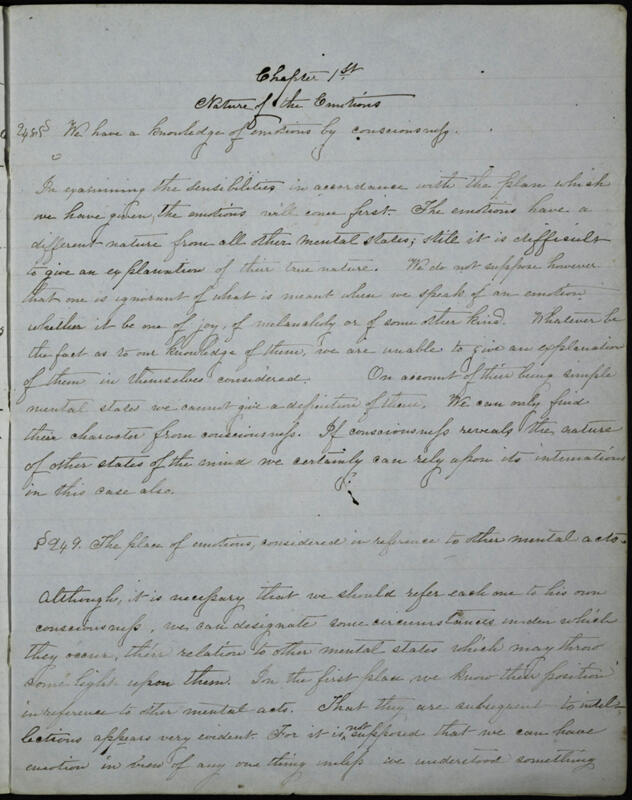 Chapter 1st
Nature of the Emotions
248§ We have a knowledge of emotions by consciousness.
In examining the sensibilities in accordance with the plan which
we have given, the emotions will come first. The emotions have a
different nature from all other mental states; still it is difficult
to give an explanation of their true nature. We do not suppose however
that one is ignorant of what is meant when we speak of an emotion
whether it be one of joy, of melancholy or of some other kind. Whatever be
the fact as to our knowledge of them, we are unable to give an explanation
of them in themselves considered. On account of their being simple
mental states we cannot give a definition of them. We can only find
their character from consciousness. If consciousness reveals the nature
of other states of the mind we certainly can rely upon its intimations
in this case also.
§249. The place of emotions, considered in reference to other mental acts.
Although, it is necessary that we should refer each one to his own
consciousness, we can designate some circumstances under which
they occur, their relation to other mental states which may throw
some light upon them. In the first place we know their position
in reference to other mental acts. That they are subsequent to intel-
lections appears very evident. For it is not supposed that we can have
emotion in view of any one thing unless we understood something